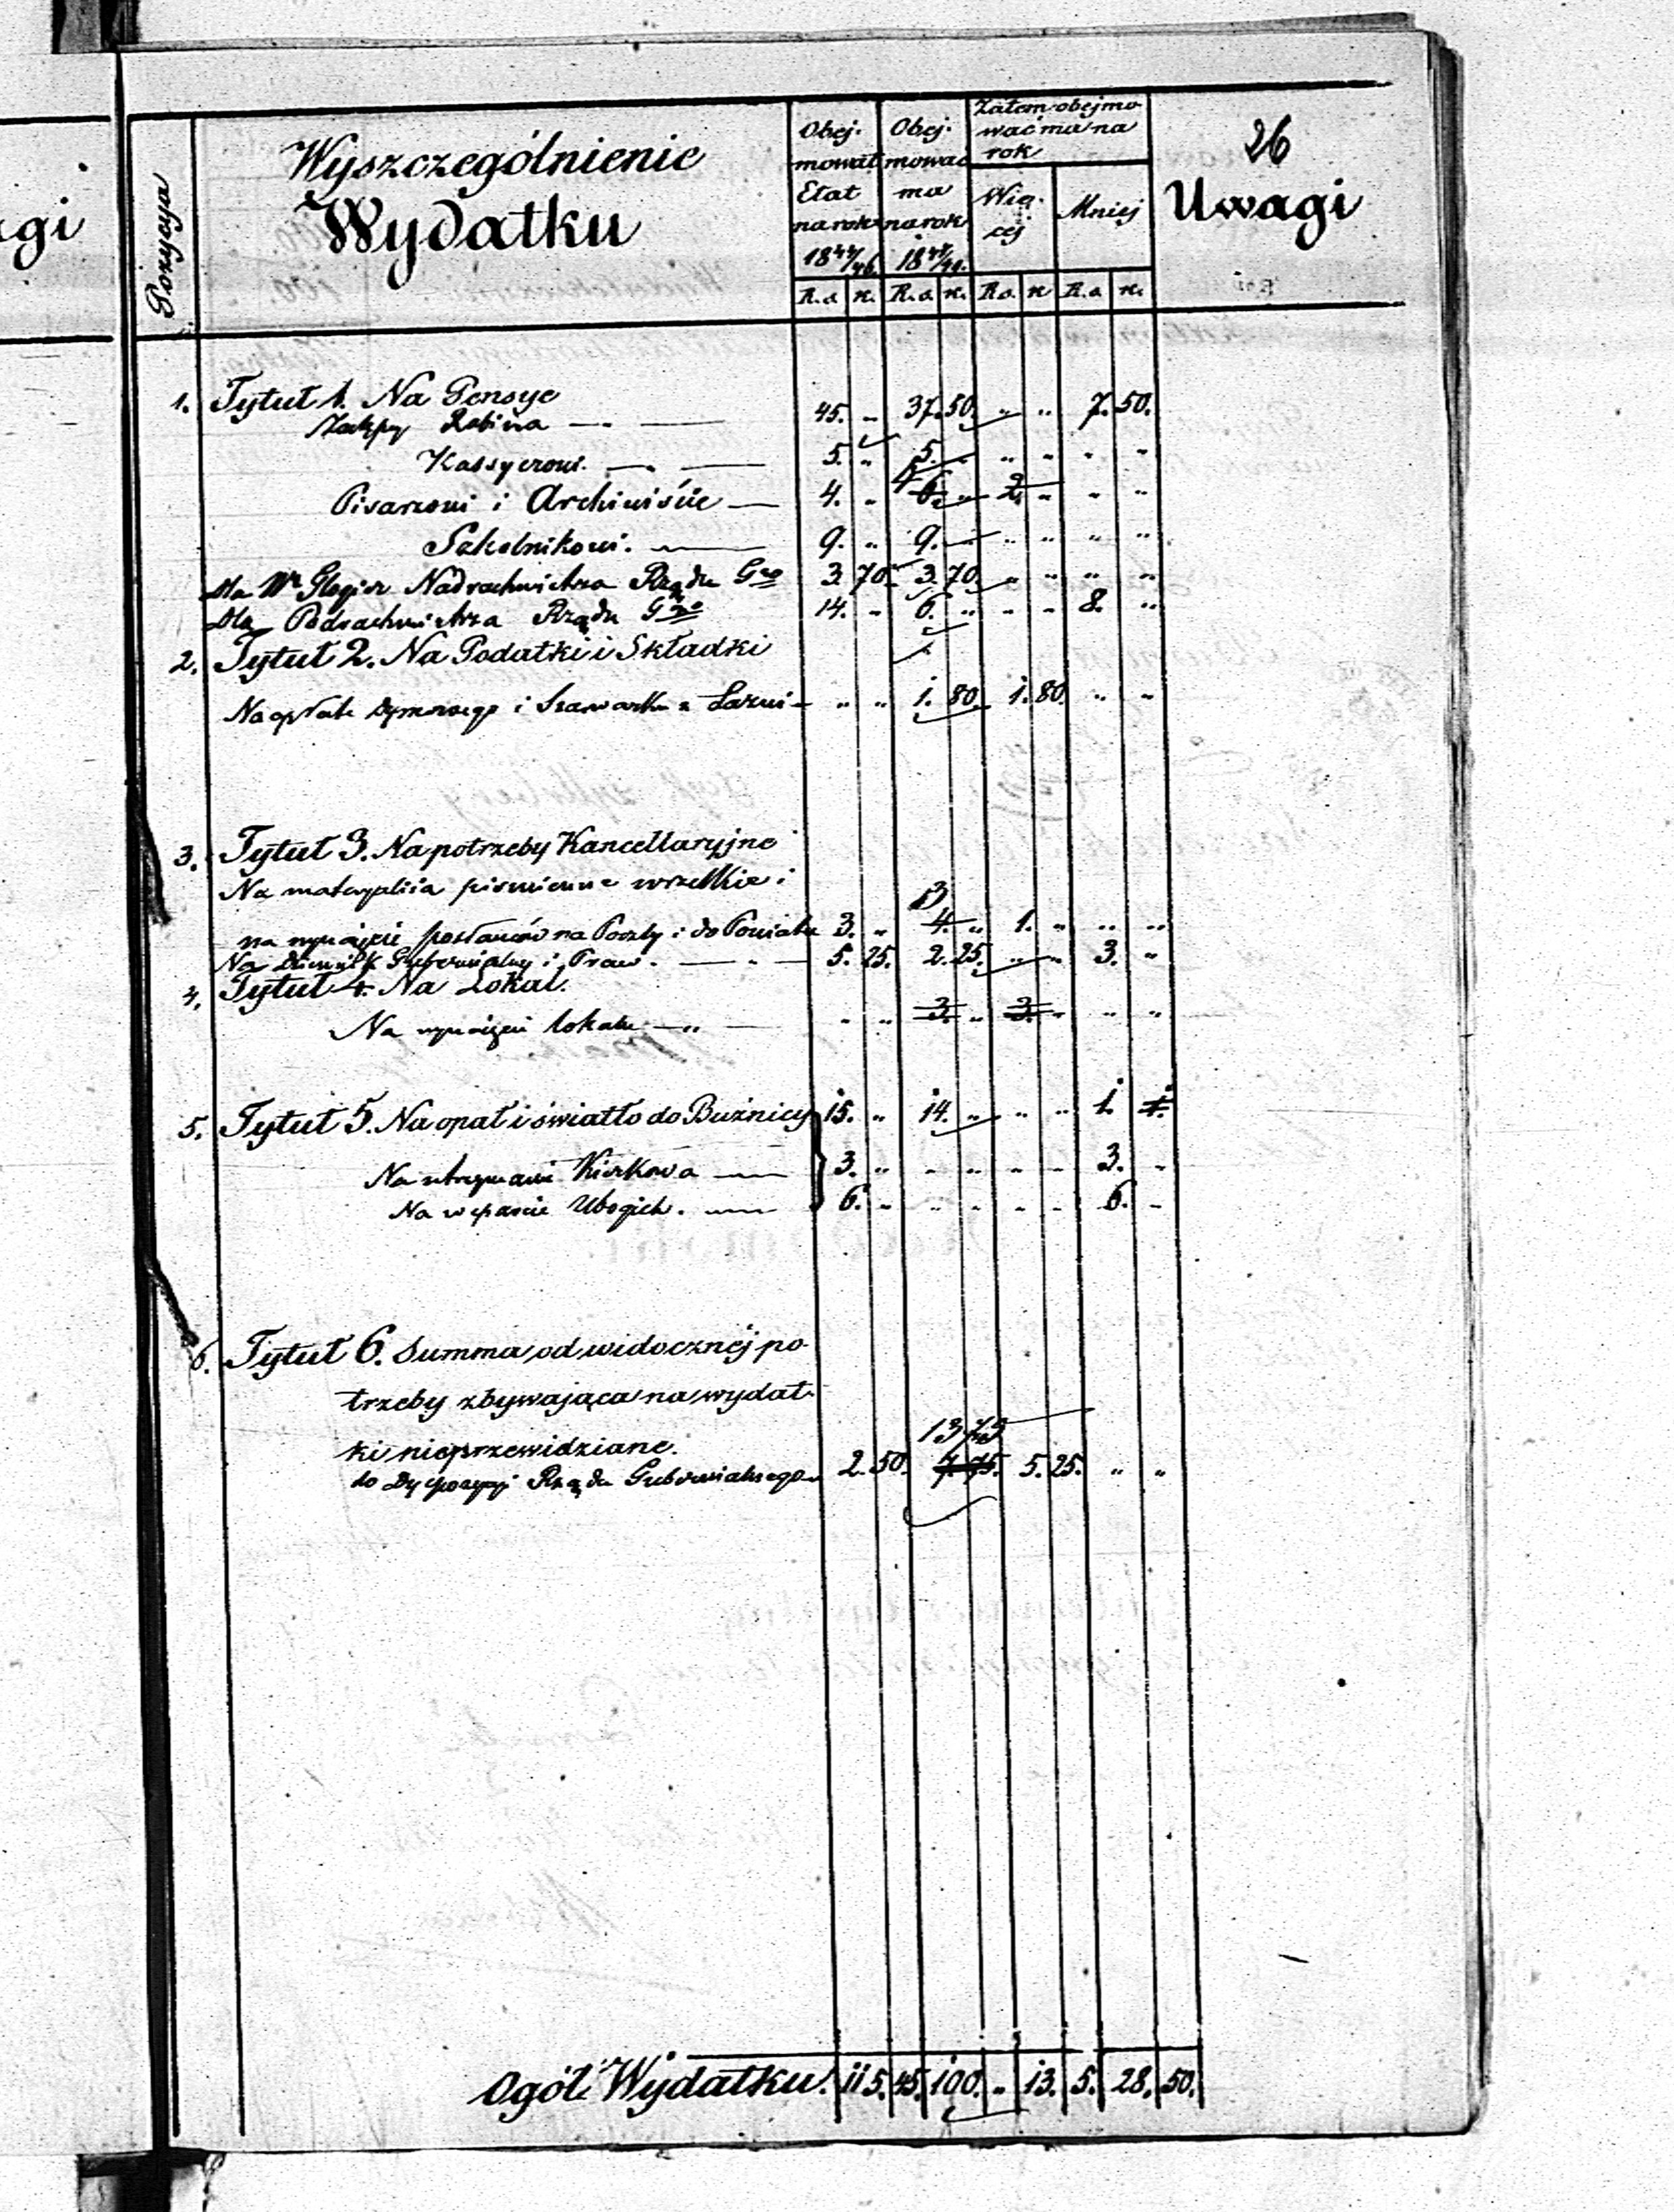 gi
26
Pozycya
Wyszczególnienie
Wydatku
Obej-
mował
Etat
na rok
18 44/46
Obej-
mować
ma
na rok
Zatem obejmo-
wać ma na
rok
Wię-
cej
Mniej
Uwagi
R.s. k. R.s. k. R.s. k R.s. k.
1. Tytuł 1. Na Pensye
Zastępcy Rabina — 45. „ 37. 50. „ „ 7. 50.
Kassyerowi. — 5. „ 5. „ „ „ „ „
Pisarzowi i Archiwiście — 4. „ 4 6. „ 2. „ „ „
Szkolnikowi. — 9. „ 9. „ „ „ „ „
Dla Wo Nadrachmistrza Rządu Ggo 3. 70. 3. 70. „ „ „ „
Dla Podrachmistrza Rządu Ggo 14. „ 6. „ „ „ 8. „
2. Tytuł 2. Na Podatki i Składki
Na opłatę Dymowego i Szarwarku z Łaźni — „ „ 1. 80. 1. 80. „ „
3. Tytuł 3. Na potrzeby Kancellaryjne
Na materyalia piśmienne wszelkie i
3
na wynajęcie posłańców na Poczty i do Powiatu 3. „ 4. „ 1. „ „ „
Na Dziennik Gubernialny i Praw. — 5. 25. 2. 25. „ „ 3. „
4. Tytuł 4. Na Lokal.
Na wynajęcie lokalu — „ „ 3. „ 3. „ „ „
5. Tytuł 5. Na opał i światło do Bużnicy 15. „ 14. „ „ „ 1. 1.
Na utrzymanie Kirkowa — 3. „ „ „ „ „ 3. „
Na wsparcie Ubogich. — 6. „ „ „ „ „ 6. „
6. Tytuł 6. Summa od widocznéj po-
trzeby zbywająca na wydat-
13 75
ki nieprzewidziane.
do Dyspozycyi Rządu Gubernialnego 2. 50. 7. 75. 5. 25. „ „
Ogół Wydatku. 115. 45. 100. „ 13. 5. 28. 50.